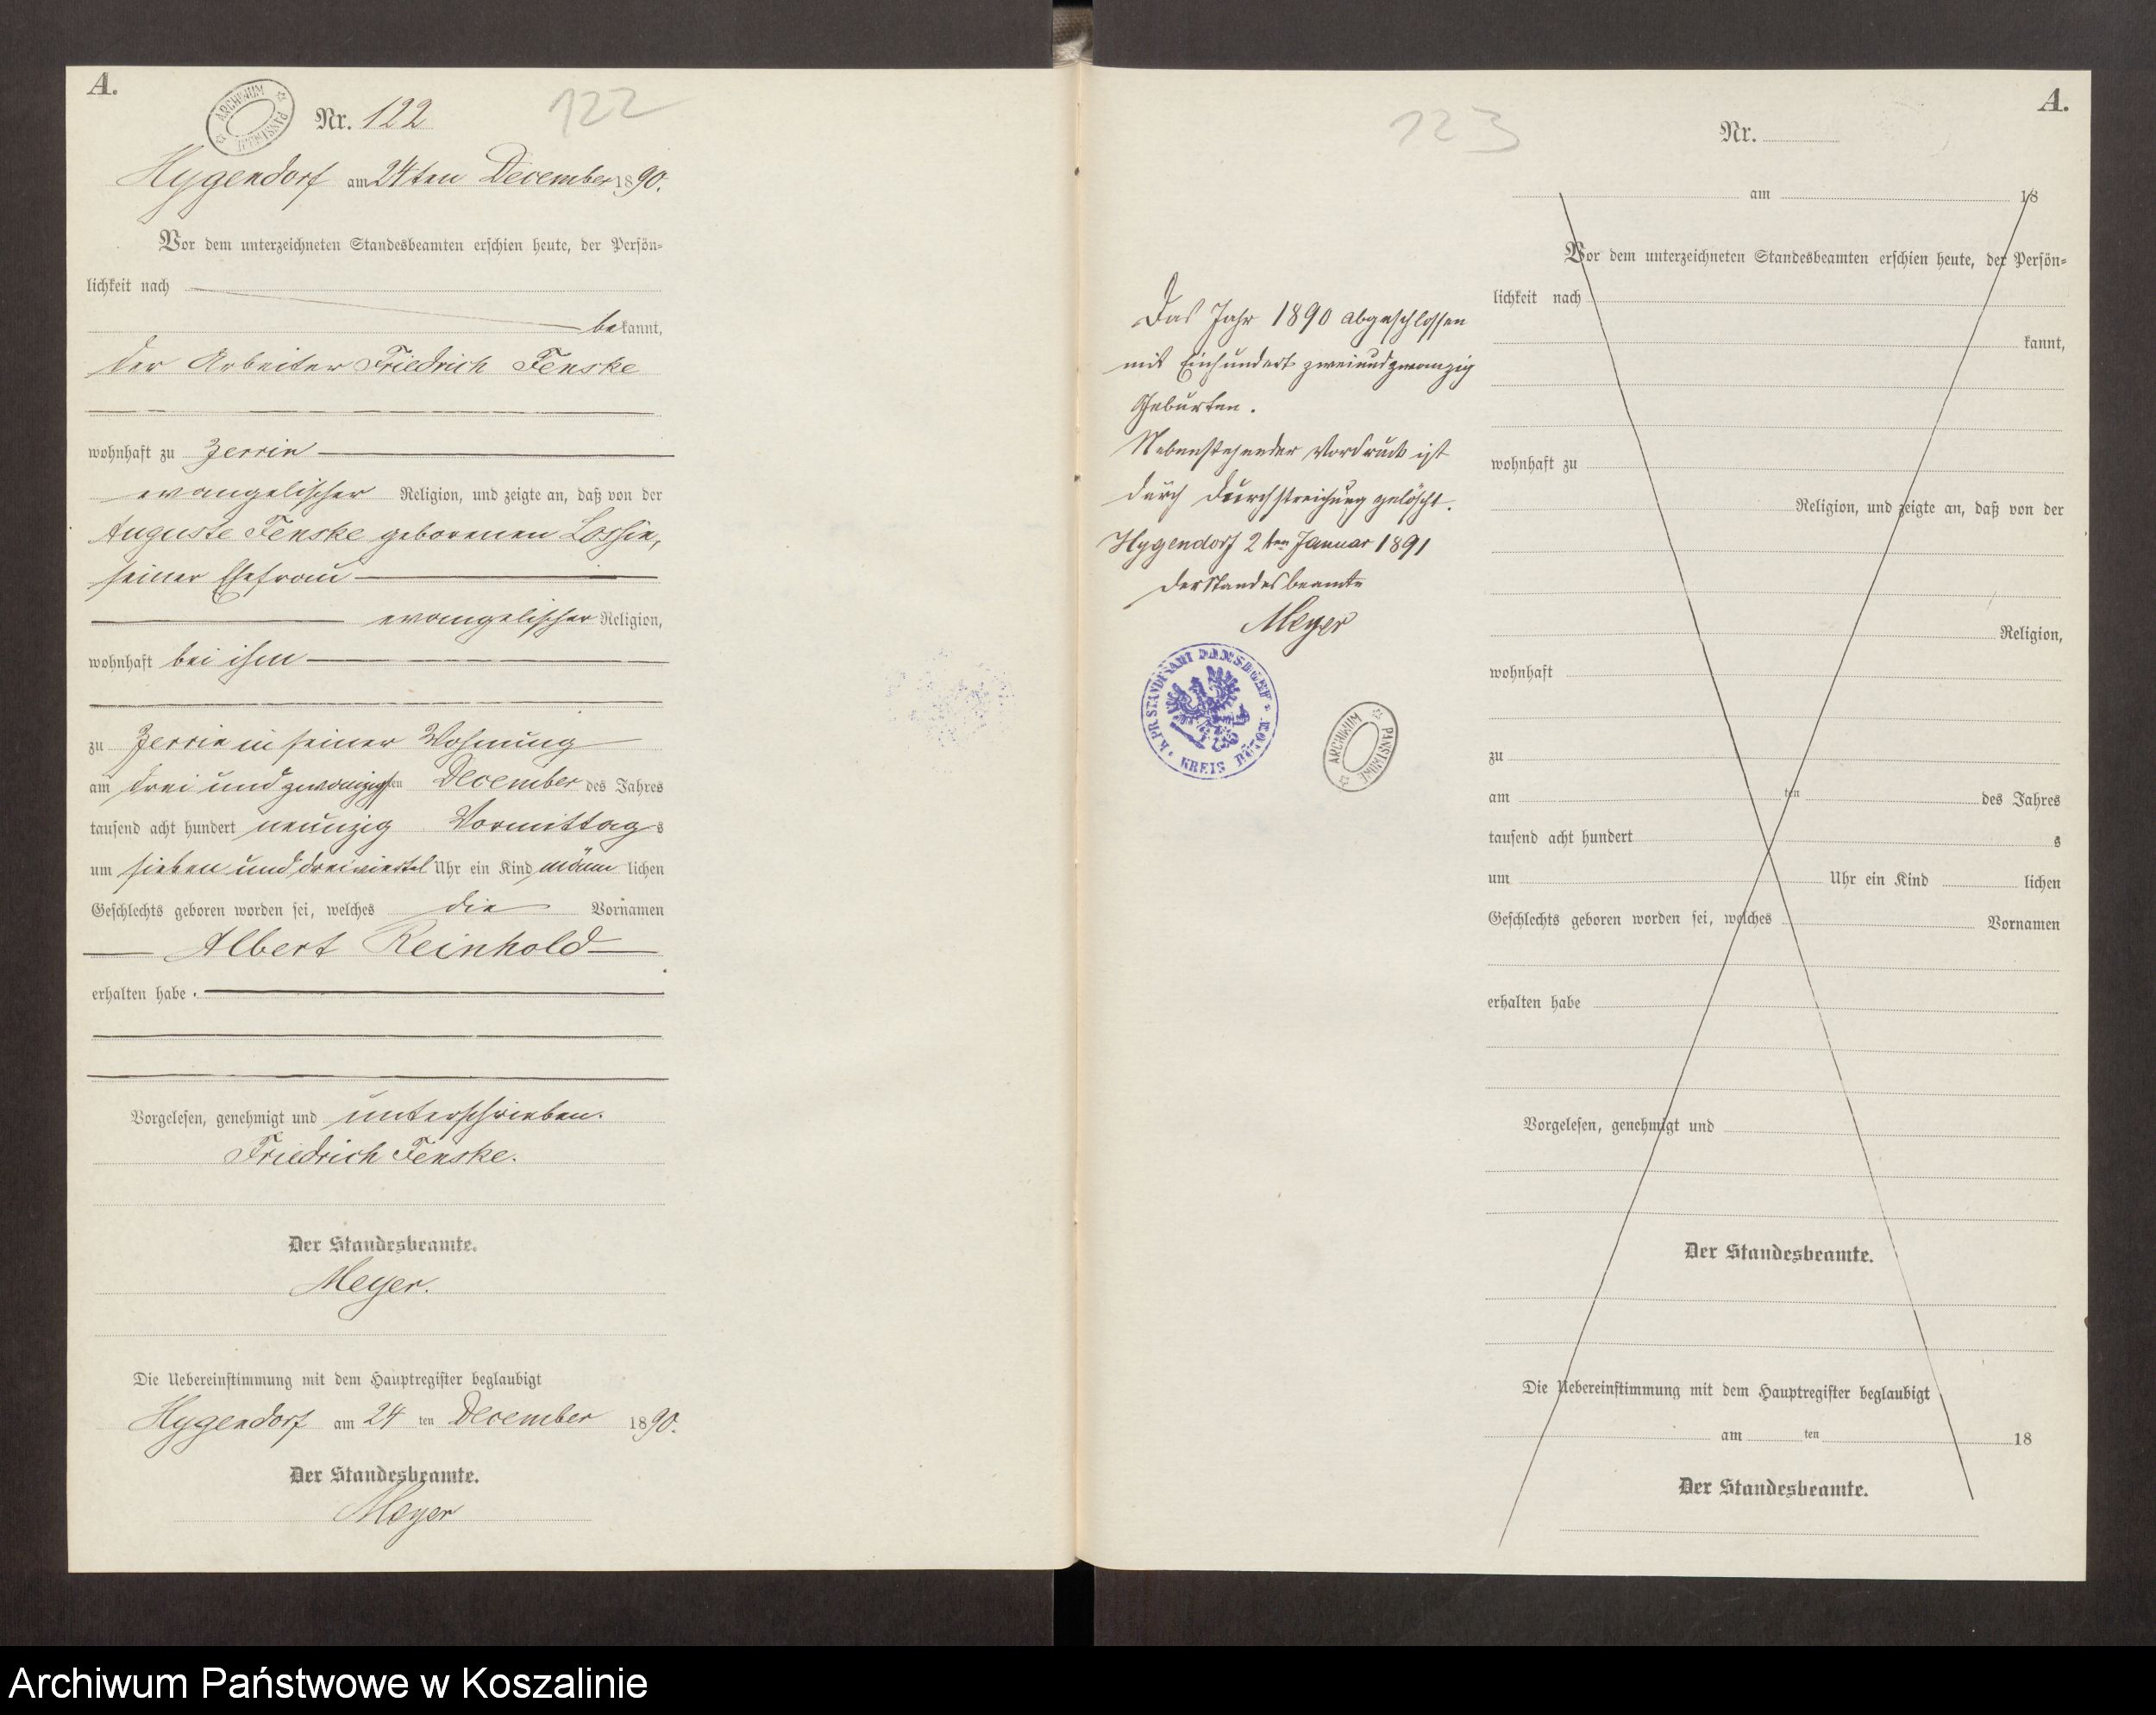 A.
ARCHIWUM PAŃSTWOWE
Nr. 122
122
Hygendorf am 24ten December 1890.
Vor dem unterzeichneten Standesbeamten erschien heute, der Persön-
lichkeit nach
bekannt,
der Arbeiter Friedrich Fenske
wohnhaft zu Zerrin
evangelischer Religion, und zeigte an, daß von der
Auguste Fenske geborenen Lossin,
seiner Ehefrau
evangelischer Religion,
wohnhaft bei ihm
zu Zerrin in seiner Wohnung
am drei und zwanzigsten December des Jahres
tausend acht hundert neunzig Vormittags
um sieben und dreiviertel Uhr ein Kind männlichen
Geschlechts geboren worden sei, welches die Vornamen
Albert Reinhold
erhalten habe.
Vorgelesen, genehmigt und unterschrieben.
Friedrich Fenske.
Der Standesbeamte.
Meyer.
Die Uebereinstimmung mit dem Hauptregister beglaubigt
Hygendorf am 24 ten December 1890.
Der Standesbeamte.
Meyer
123
Das Jahr 1890 abgeschlossen
mit Einhundert zweiundzwanzig
Geburten.
Nebenstehender Vordruck ist
durch Durchstreichung gelöscht.
Hygendorf 2ten Januar 1891
Der Standesbeamte
Meyer
K. PR. STANDESAMT DAMSDORF
KREIS BÜTOW
ARCHIWUM PAŃSTWOWE
A.
Nr.
am 18
Vor dem unterzeichneten Standesbeamten erschien heute, der Persön-
lichkeit nach
kannt,
wohnhaft zu
Religion, und zeigte an, daß von der
Religion,
wohnhaft
zu
am ten des Jahres
tausend acht hundert s
um Uhr ein Kind lichen
Geschlechts geboren worden sei, welches Vornamen
erhalten habe
Vorgelesen, genehmigt und
Der Standesbeamte.
Die Uebereinstimmung mit dem Hauptregister beglaubigt
am ten 18
Der Standesbeamte.
Archiwum Państwowe w Koszalinie